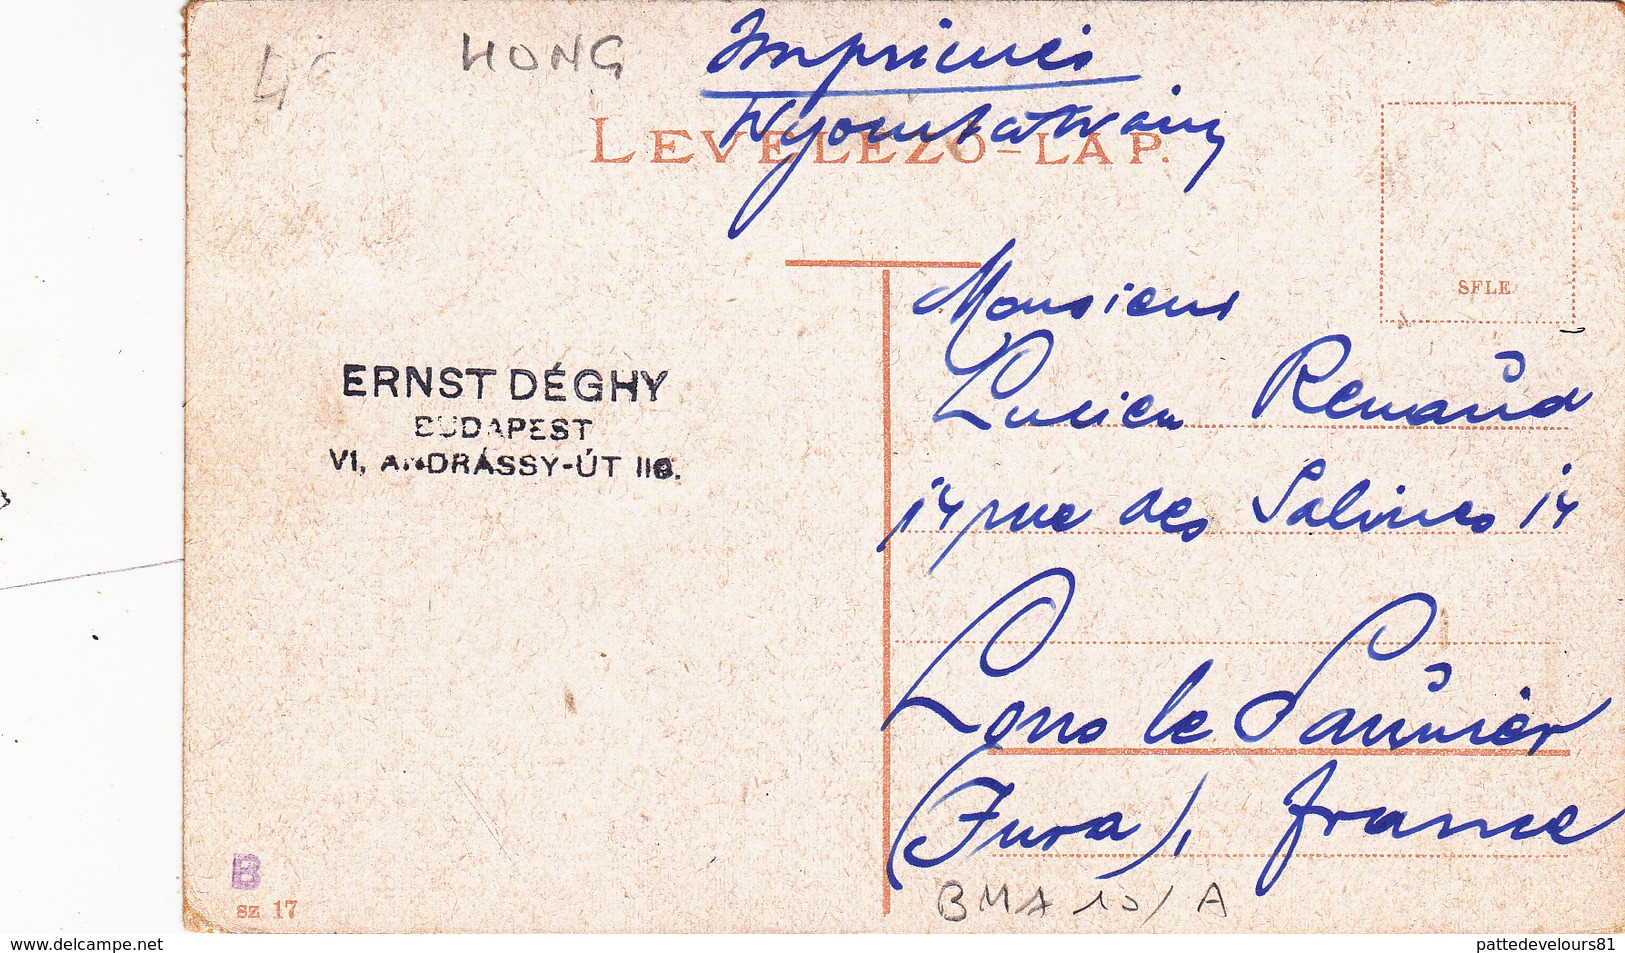 4€
HONG
Imprimés
Nyomtatvány
LEVELEZŐ-LAP.
SFLE
Monsieur
Lucien Renaud
14 rue des Salines 14
Lons le Saunier
(Jura), France
ERNST DÉGHY
BUDAPEST
VI, ANDRÁSSY-ÚT
B
sz 17
delcampe.net
pattedevelours81